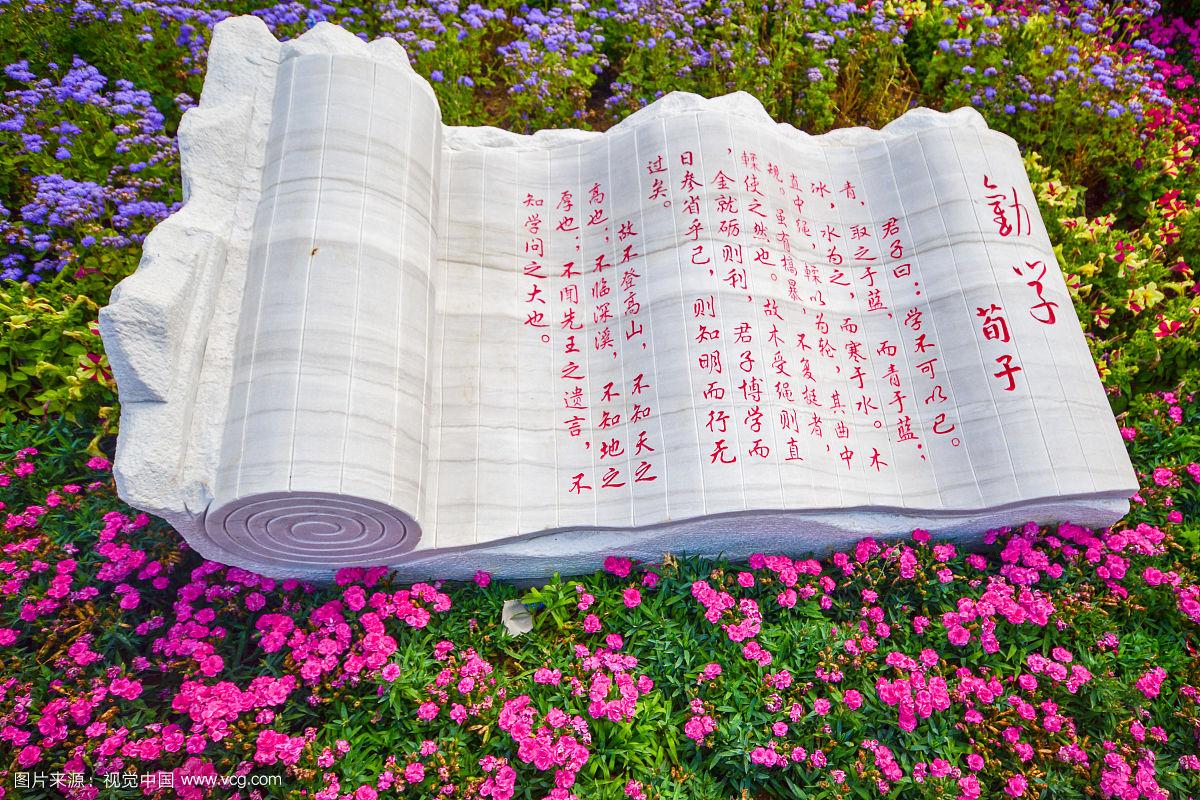 勸学
荀子
君子曰：学不可以已。
青，取之于蓝，而青于蓝；
冰，水为之，而寒于水。木
直中绳，輮以为轮，其曲中
规。虽有槁暴，不复挺者，
輮使之然也。故木受绳则直
，金就砺则利，君子博学而
日参省乎己，则知明而行无
过矣。
故不登高山，不知天之
高也；不临深溪，不知地之
厚也；不闻先王之遗言，不
知学问之大也。
图片来源：视觉中国 www.vcg.com